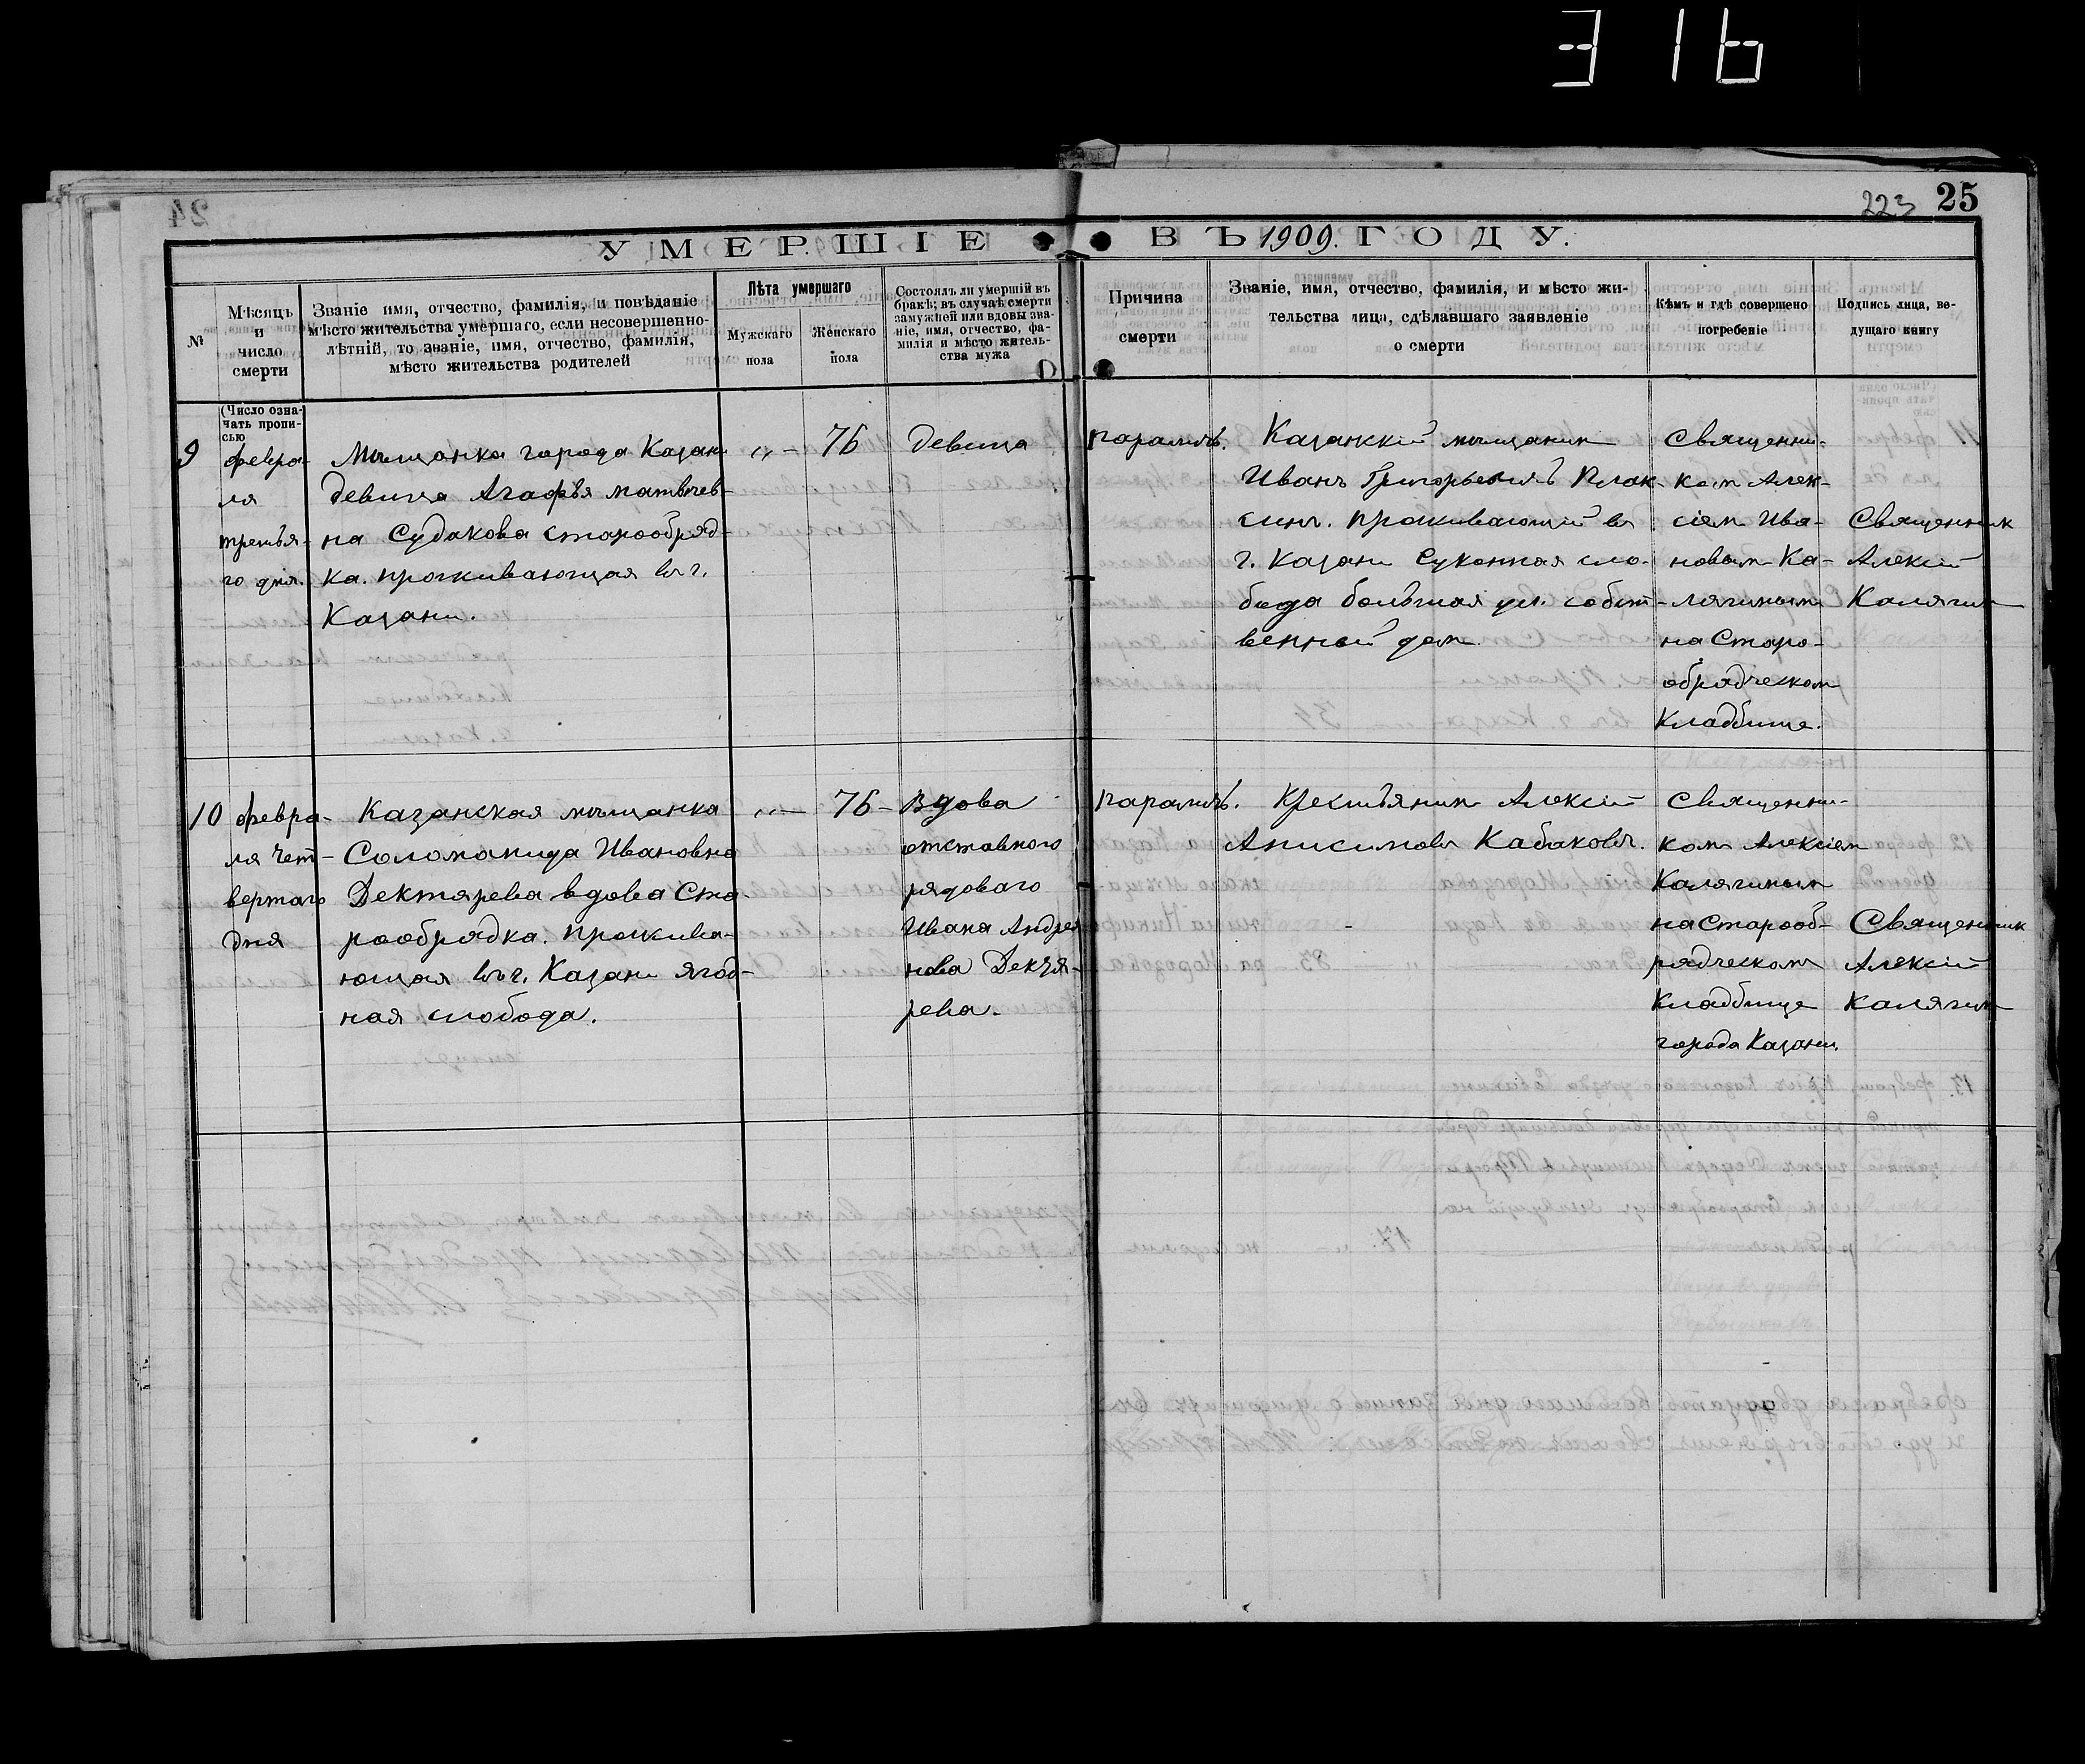 316
223 25
УМЕРШІЕ ВЪ 1909. ГОДУ.
№
Мѣсяцъ
и
число
смерти
Званіе имя, отчество, фамилія, и повѣданіе
мѣсто жительства умершаго, если несовершенно-
лѣтній, то званіе, имя, отчество, фамилія,
мѣсто жительства родителей
Лѣта умершаго
Мужскаго
пола
Женскаго
пола
Состоялъ ли умершій въ
бракѣ; въ случаѣ смерти
замужней или вдовы зва-
ніе, имя, отчество, фа-
милія и мѣсто житель-
ства мужа
Причина
смерти
Званіе, имя, отчество, фамилія, и мѣсто жи-
тельства лица, сдѣлавшаго заявленіе
о смерти
Кѣмъ и гдѣ совершено
погребеніе
Подпись лица, ве-
дущаго книгу
(Число озна-
чать пропи-
сью
9
февра-
ля
третья-
го дня.
Мѣщанка города Казан
девица Агафья матвѣев-
на Судакова старообряд-
ка. проживающая въ г.
Казани.
„ –
76
девица
параличъ.
Казанскій мѣщанин
Иванъ Григорьевичъ Плак-
синъ. проживающій въ
г. Казани Суконная сло-
бода большая ул. собст-
венный дом.
Священни-
ком Алек-
сіем Ива-
новым Ка-
лягиным
на Старо-
обрядческом
Кладбище.
Священник
Алексій
Калягин
10
февра-
ля чет-
вертаго
дня
Казанская мѣщанка
Соломанида Ивановна
Дектярева вдова Ста-
рообрядка. прожива-
ющая въ г. Казани Ягод-
ная слобода.
„ —
76 –
Вдова
отставного
рядоваго
Ивана Андрея
нова Дектя-
рева.
параличъ.
Крестьянин Алексій
Анисимовъ Кабаковъ.
Священни-
ком Алексіем
Калягиным
на Старооб-
рядческом
Кладбище
города Казани.
Священник
Алексій
Калягин